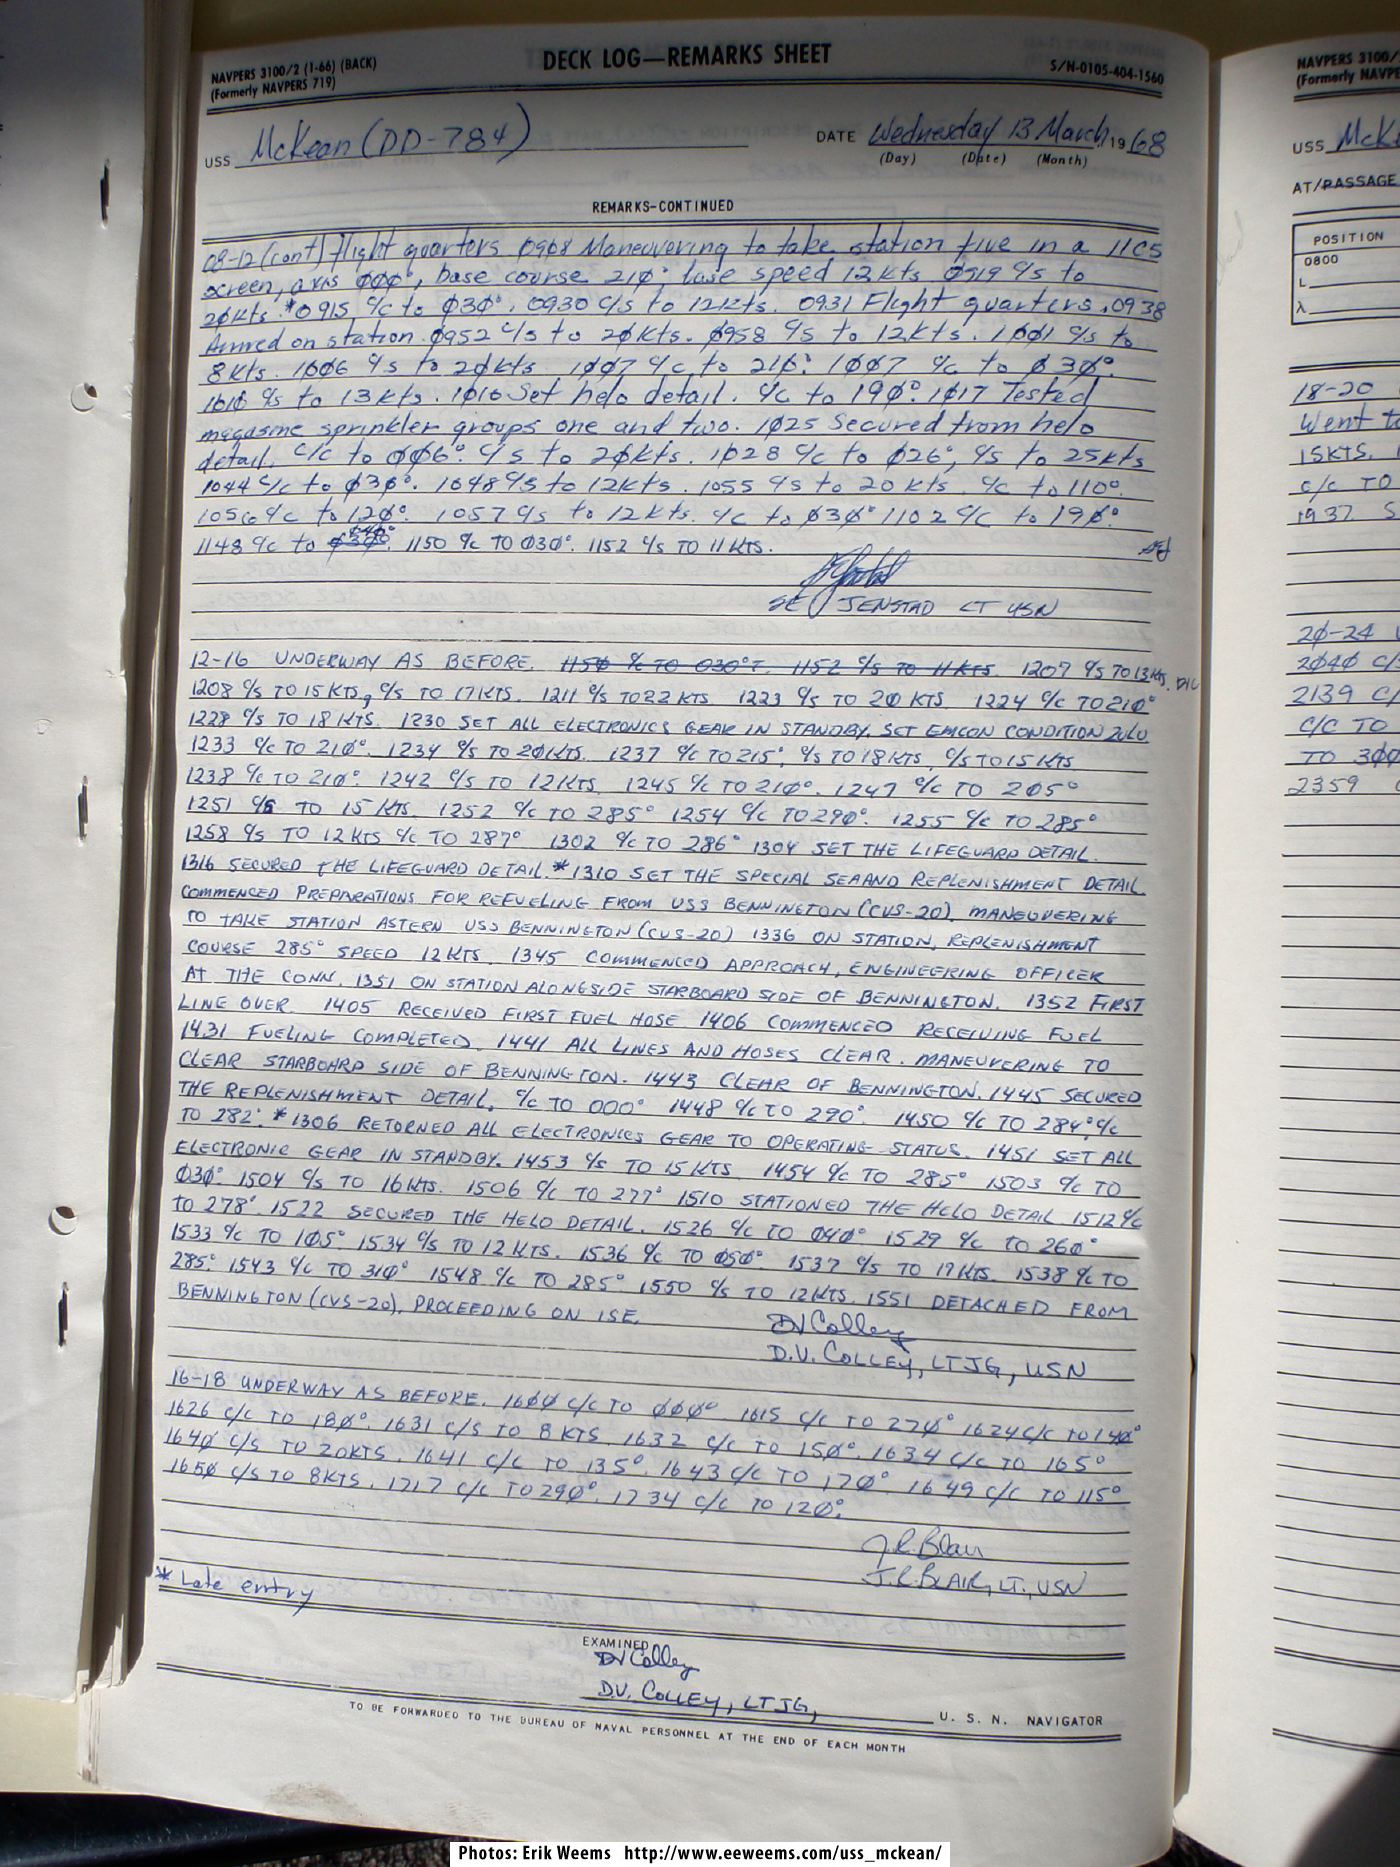 NAVPERS 3100/2 (1-66) (BACK)
(Formerly NAVPERS 719)
DECK LOG—REMARKS SHEET
S/N-0105-404-1560
USS McKean (DD-784)
DATE Wednesday 13 March, 1968
(Day) (Date) (Month)
REMARKS-CONTINUED
08-12 (cont) flight quarters 0908 Maneuvering to take station five in a 11C5
screen, axis 000°, base course 210°, base speed 12kts 0919 c/s to
20kts. *0915 c/c to 030°. 0930 c/s to 12kts. 0931 Flight quarters. 0938
Arrived on station. 0952 c/s to 20kts. 0958 c/s to 12kts. 1001 c/s to
8kts. 1006 c/s to 20kts. 1007 c/c to 210°. 1007 c/c to 030°.
1010 c/s to 13kts. 1010 Set helo detail. c/c to 190°. 1017 Tested
magazine sprinkler groups one and two. 1025 Secured from helo
detail. c/c to 006°. c/s to 20kts. 1028 c/c to 026°, c/s to 25kts
1044 c/c to 030°. 1048 c/s to 12kts. 1055 c/s to 20 kts c/c to 110°.
1056 c/c to 120°. 1057 c/s to 12kts. c/c to 030° 1102 c/c to 190°.
1148 c/c to 030°. 1150 c/c TO 030°. 1152 c/s TO 11 KTS.
SE JENSTAD LT USN
12-16 UNDERWAY AS BEFORE. 1150 c/c TO 030°T. 1152 c/s TO 11 KTS. 1207 c/s TO 13 KTS. DVC
1208 c/s TO 15 KTS, c/s TO 17 KTS. 1211 c/s TO 22 KTS 1223 c/s TO 20 KTS 1224 c/c TO 210°
1228 c/s TO 18 KTS. 1230 SET ALL ELECTRONICS GEAR IN STANDBY. SET EMCON CONDITION ZULU
1233 c/c TO 210°. 1234 c/s TO 20KTS. 1237 c/c TO 215°, c/s TO 18 KTS, c/s TO 15 KTS
1238 c/c TO 210°. 1242 c/s TO 12 KTS, 1245 c/c TO 210°. 1247 c/c TO 205°
1251 c/s TO 15 KTS. 1252 c/c TO 285° 1254 c/c TO 290°. 1255 c/c TO 285°
1258 c/s TO 12 KTS c/c TO 287° 1302 c/c TO 286° 1304 SET THE LIFEGUARD DETAIL.
1316 SECURED THE LIFEGUARD DETAIL. *1310 SET THE SPECIAL SEA AND REPLENISHMENT DETAIL
COMMENCED PREPARATIONS FOR REFUELING FROM USS BENNINGTON (CVS-20). MANEUVERING
TO TAKE STATION ASTERN USS BENNINGTON (CVS-20) 1336 ON STATION, REPLENISHMENT
COURSE 285° SPEED 12 KTS. 1345 COMMENCED APPROACH, ENGINEERING OFFICER
AT THE CONN. 1351 ON STATION ALONGSIDE STARBOARD SIDE OF BENNINGTON. 1352 FIRST
LINE OVER. 1405 RECEIVED FIRST FUEL HOSE 1406 COMMENCED RECEIVING FUEL
1431 FUELING COMPLETED. 1441 ALL LINES AND HOSES CLEAR. MANEUVERING TO
CLEAR STARBOARD SIDE OF BENNINGTON. 1443 CLEAR OF BENNINGTON. 1445 SECURED
THE REPLENISHMENT DETAIL, c/c TO 000° 1448 c/c TO 290°. 1450 c/c TO 284°, c/c
TO 282°. *1306 RETORNED ALL ELECTRONICS GEAR TO OPERATING STATUS. 1451 SET ALL
ELECTRONIC GEAR IN STANDBY. 1453 c/s TO 15 KTS 1454 c/c TO 285° 1503 c/c TO
030°. 1504 c/s TO 16 KTS. 1506 c/c TO 277° 1510 STATIONED THE HELO DETAIL 1512 c/c
TO 278°. 1522 SECURED THE HELO DETAIL. 1526 c/c TO 040° 1529 c/c TO 260°
1533 c/c TO 105°. 1534 c/s TO 12 KTS. 1536 c/c TO 050°. 1537 c/s TO 17 KTS. 1538 c/c TO
285°. 1543 c/c TO 310° 1548 c/c TO 285°. 1550 c/s TO 12KTS. 1551 DETACHED FROM
BENNINGTON (CVS-20). PROCEEDING ON ISE.
DV Colley
D.V. COLLEY, LTJG, USN
16-18 UNDERWAY AS BEFORE. 1600 C/C TO 000° 1615 C/C TO 270° 1624 C/C TO 140°
1626 C/C TO 180°. 1631 C/S TO 8 KTS. 1632 C/C TO 150°. 1634 C/C TO 165°
1640 C/S TO 20KTS. 1641 C/C TO 135°. 1643 C/C TO 170°. 1649 C/C TO 115°
1650 C/S TO 8KTS. 1717 C/C TO 290°. 1734 C/C TO 120°.
J.R. Blair
J.R. BLAIR, LT, USN
* Late entry
EXAMINED
DV Colley
D.V. COLLEY, LTJG, U. S. N. NAVIGATOR
TO BE FORWARDED TO THE BUREAU OF NAVAL PERSONNEL AT THE END OF EACH MONTH
NAVPERS 3100/
(Formerly NAVPE
USS McKe
AT/PASSAGE
POSITION
0800
L
λ
18-20
Went to
15KTS.
C/C TO
1937 S
20-24
2040 C/
2139 C/
C/C TO
TO 300
2359
Photos: Erik Weems http://www.eeweems.com/uss_mckean/